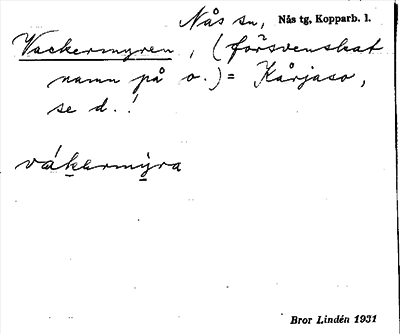 Nås sn, Nås tg, Kopparb. l.
Vackermyren, (försvenskat
namn på o.) = Kårjaso,
se d.!
vákermỳra
Bror Lindén 1931